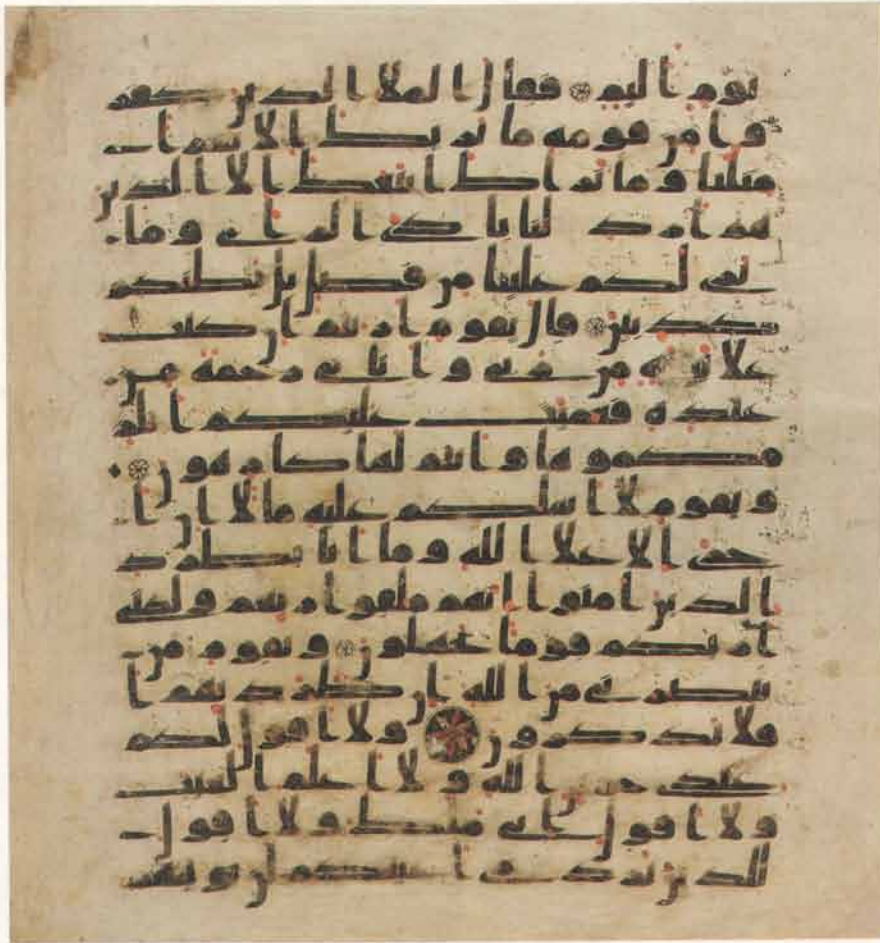 يوم اليم فقال الملا الذين كفر
وا من قومه ما نريك الا بشرا
مثلنا وما نريك اتبعك الا الذين
هم اراذلنا بادى الراى وما
نرى لكم علينا من فضل بل نظنكم
كذبين قال يقوم اريتم ان كنت
على بينة من ربى واتانى رحمة من
عنده فعميت عليكم انلز
مكموها وانتم لها كارهون
ويقوم لا اسلكم عليه مالا ان ا
جرى الا على الله وما انا بطارد
الذين امنوا انهم ملقوا ربهم ولكنى
اريكم قوما تجهلون ويقوم من
ينصرنى من الله ان طردتهم ا
فلا تذكرون ولا اقول لكم
عندى خزاين الله ولا اعلم الغيب
ولا اقول انى ملك ولا اقول
للذين تزدرى اعينكم لن يوتيهم